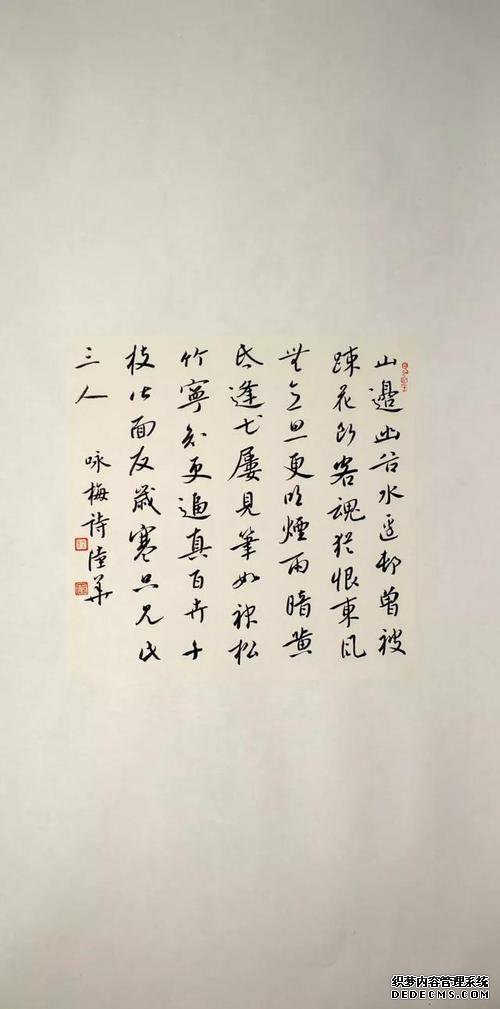 山邊幽谷水邊邨曾被
踈花断客魂猶恨東風
無意思更吹煙雨暗黄
昏逢尤屢見筆如神松
竹寧知更逼真百卉千
枝皆面友歲寒只见此
三人
咏梅诗陸華
织梦内容管理系统
DEDECMS.COM